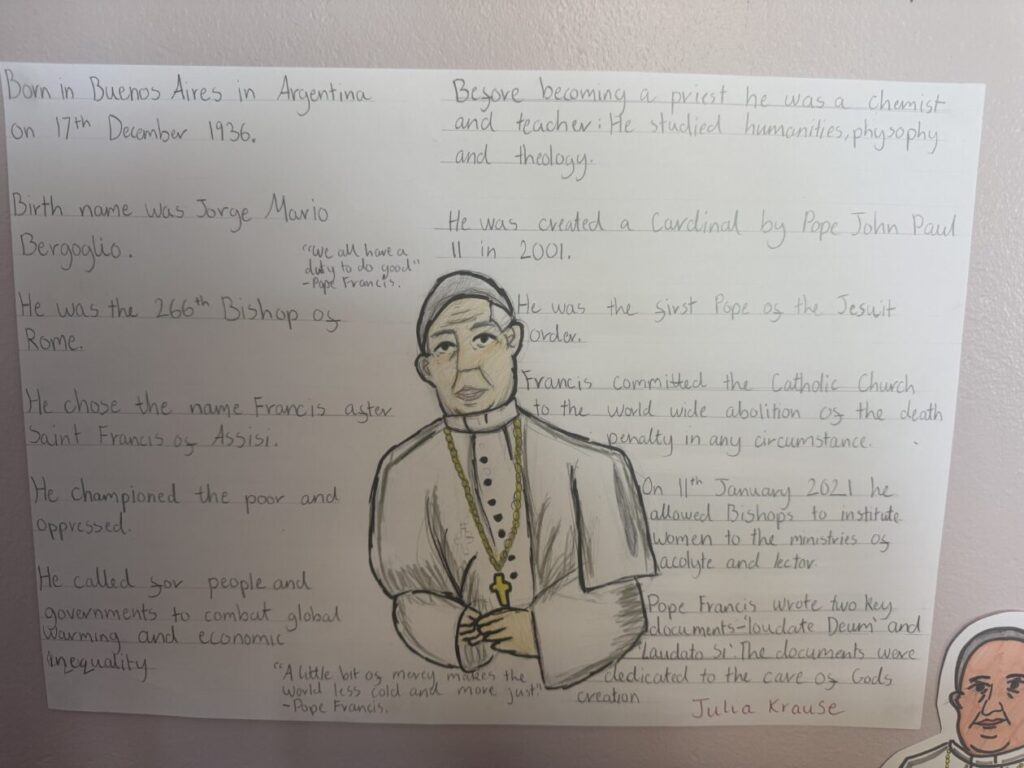 Born in Buenos Aires in Argentina
on 17th December 1936.
Birth name was Jorge Mario
Bergoglio.
"We all have a
duty to do good"
-Pope Francis.
He was the 266th Bishop of
Rome.
He chose the name Francis after
Saint Francis of Assisi.
He championed the poor and
oppressed.
He called for people and
governments to combat global
warming and economic
inequality
"A little bit of mercy makes the
world less cold and more just"
-Pope Francis.
Before becoming a priest he was a chemist
and teacher: He studied humanities, physophy
and theology.
He was created a Cardinal by Pope John Paul
II in 2001.
He was the first Pope of the Jesuit
order.
Francis committed the Catholic Church
to the world wide abolition of the death
penalty in any circumstance.
On 11th January 2021 he
allowed Bishops to institute
women to the ministries of
acolyte and lector
Pope Francis wrote two key
documents-'loudate Deum' and
'Laudato Si' The documents were
dedicated to the care of Gods
creation
Julia Krause